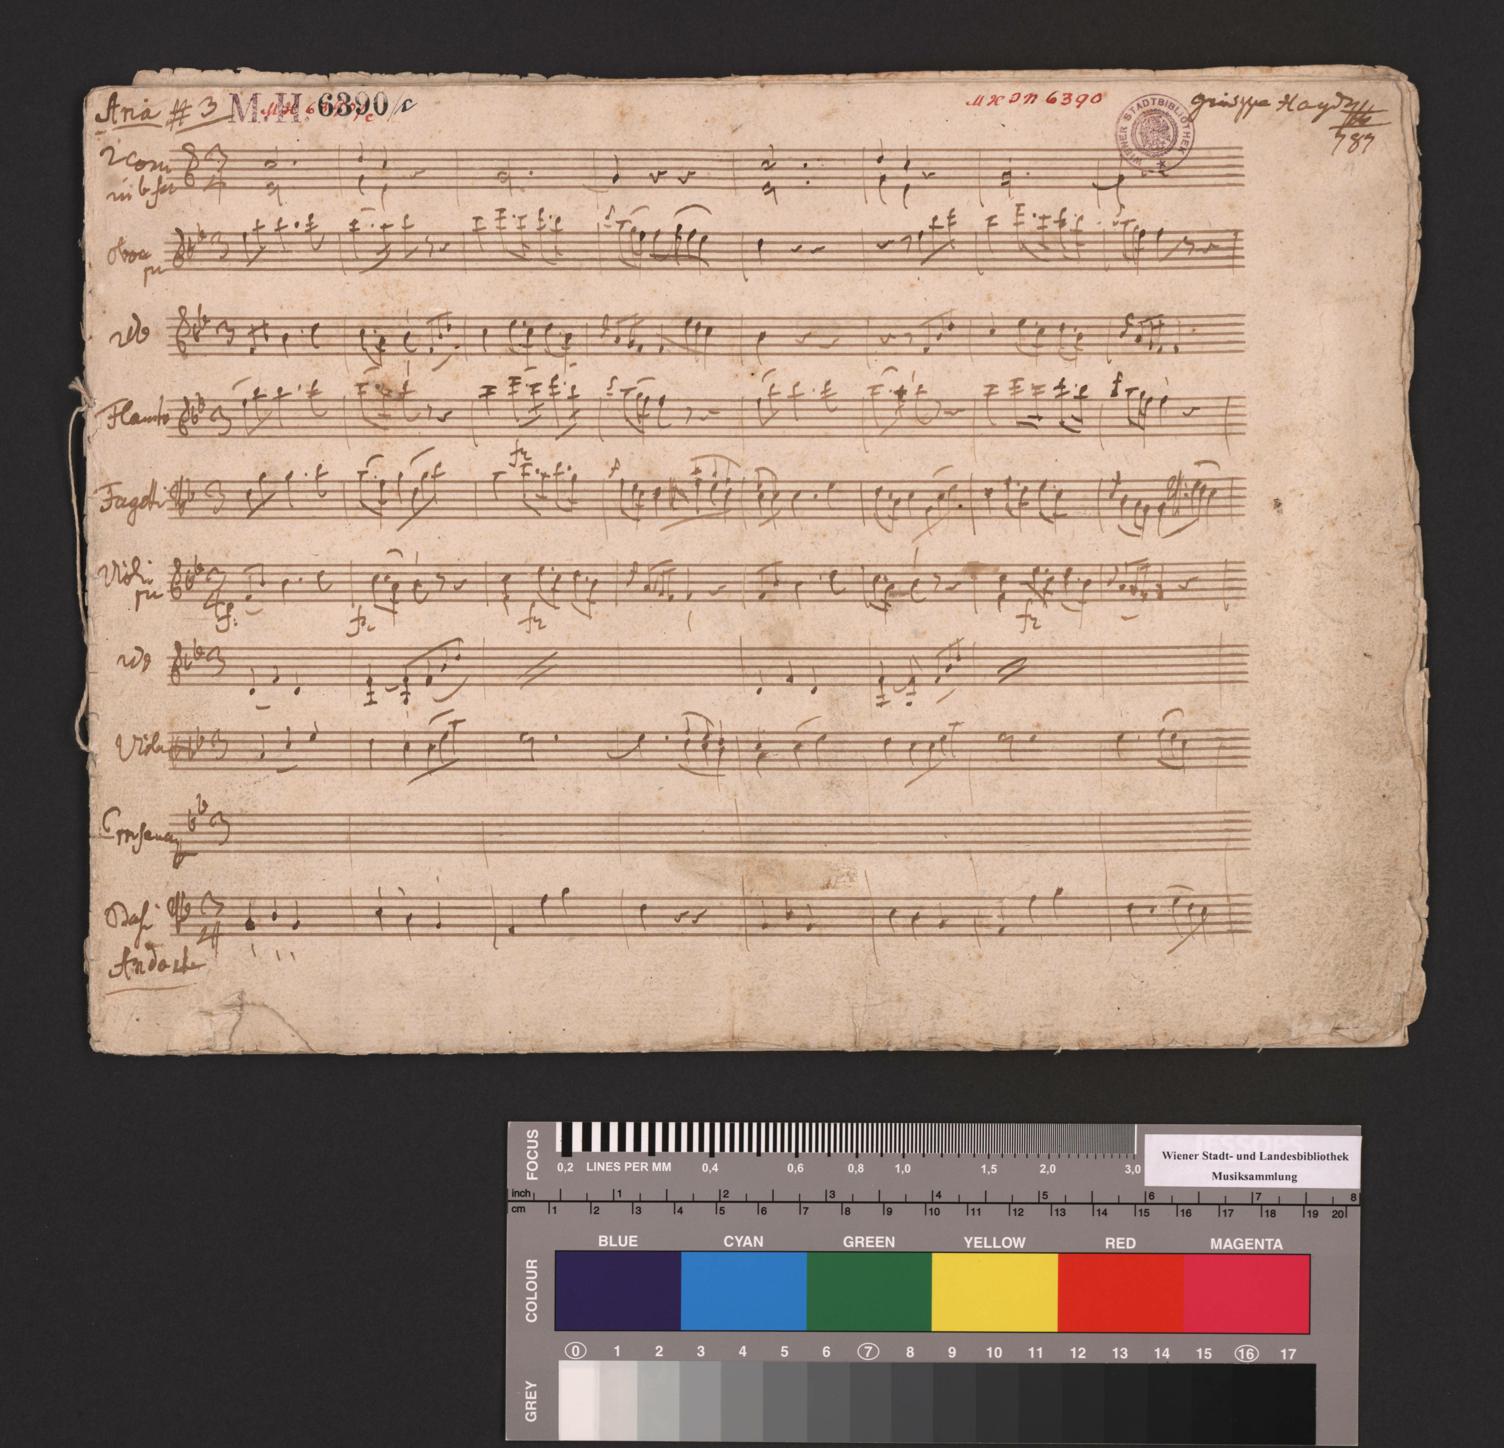 Aria # 3
M. H. 6390/c
MHJN 6390
Giuseppe Haydn
787
WIENER STADTBIBLIOTHEK
2 Corni
in b fa
3
4
Oboe
pu
2do
Flauto
Fagotti
Violin
pu
f:
fz
fz
fz
fz
2do
Viola
Bassi
3
4
Andante
FOCUS
0,2 LINES PER MM 0,4 0,6 0,8 1,0 1,5 2,0 3,0
Wiener Stadt- und Landesbibliothek
Musiksammlung
inch 1 2 3 4 5 6 7 8
cm 1 2 3 4 5 6 7 8 9 10 11 12 13 14 15 16 17 18 19 20
COLOUR
BLUE CYAN GREEN YELLOW RED MAGENTA
0 1 2 3 4 5 6 7 8 9 10 11 12 13 14 15 16 17
GREY